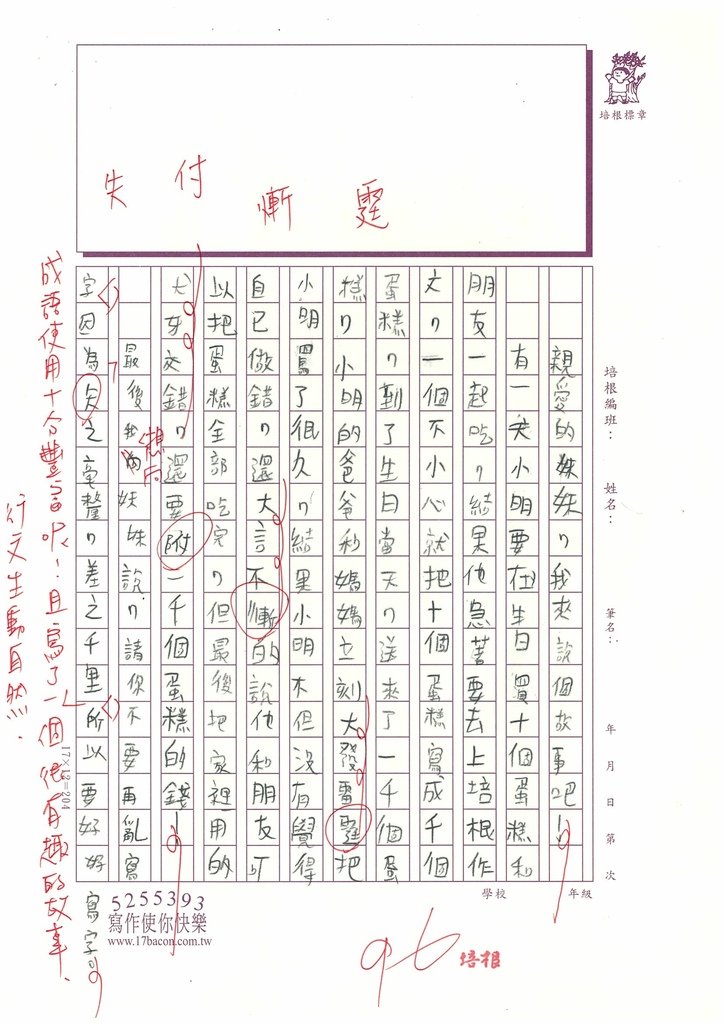 培根標章
失 付 慚 霆
培根編班： 姓名： 筆名： 年 月 日 第 次
親愛的妹妹，我來說個故事吧！
有一天小明要在生日買十個蛋糕和
朋友一起吃，結果他急著要去上培根作
文，一個不小心就把十個蛋糕寫成千個
蛋糕，到了生日當天，送來了一千個蛋
糕，小明的爸爸和媽媽立刻大發雷霆把
小明罵了很久，結果小明不但沒有覺得
自己做錯，還大言不慚的說他和朋友可
以把蛋糕全部吃完，但最後把家裡用的
犬牙交錯，還要附一千個蛋糕的錢！
最後我
想
妹妹說，請你不要再亂寫
字因為失之毫釐，差之千里所以要好好
寫字。
成語使用十分豐富呢！且寫了一個很有趣的故事、
行文生動自然．
17×12=204
學校 年級
5255393
寫作使你快樂
www.17bacon.com.tw
96
培根